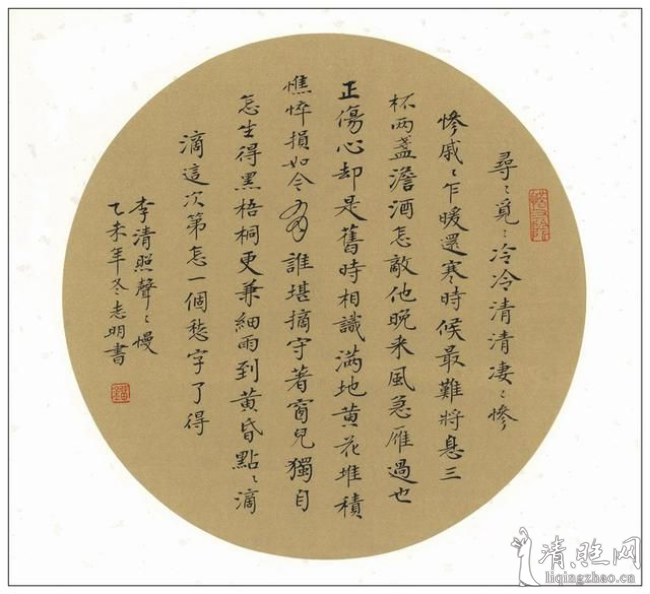 尋〻覓〻冷冷清清凄〻惨
惨戚〻乍暖還寒時候最難將息三
杯两盞澹酒怎敵他晚来風急雁過也
正傷心却是舊時相識满地黄花堆積
憔悴損如今有誰堪摘守著窗兒獨自
怎生得黑梧桐更兼細雨到黄昏點〻滴
滴這次第怎一個愁字了得
李清照聲〻慢
乙未年冬志明書
清照网
liqingzhao.cn